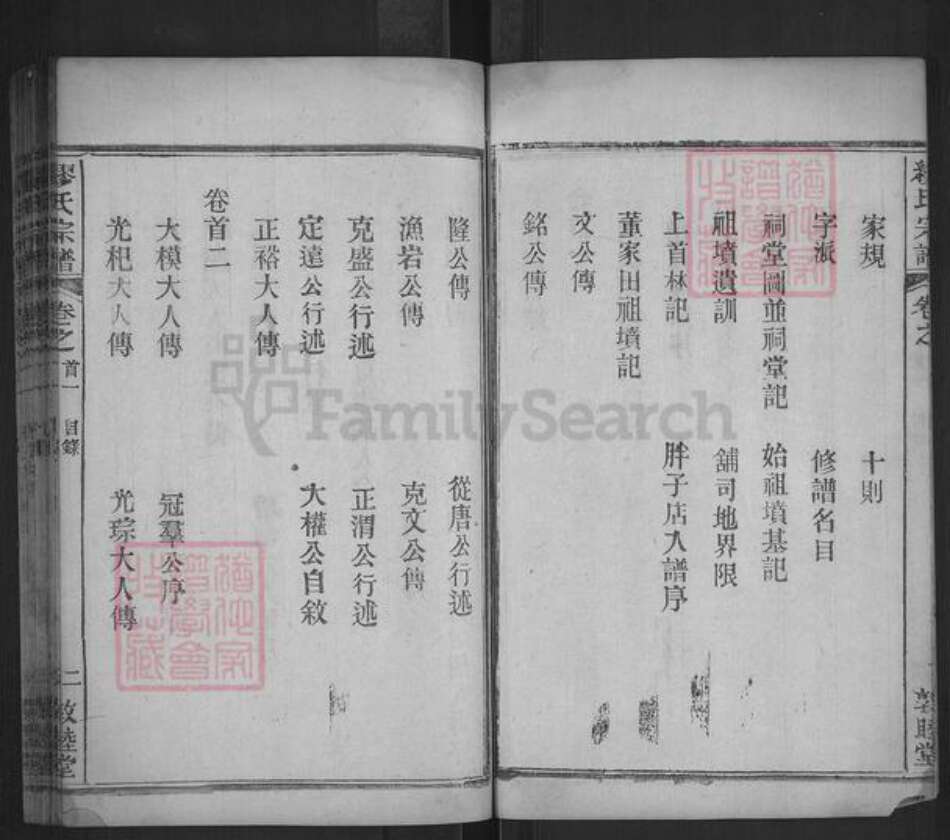 家規 十則
字派 修譜名目
祠堂圖並祠堂記 始祖墳基記
祖墳遺訓 舖司地界限
上首林記 胖子店入譜序
董家田祖墳記
文公傳
銘公傳
隆公傳 從唐公行述
漁岩公傳 克文公傳
克盛公行述 正渭公行述
定遠公行述 大權公自敘
正裕大人傳
卷首二
大模大人傳 冠羣公序
光杞大人傳 光琮大人傳
繆氏宗譜 卷之首一 目錄 二 敦睦堂
FamilySearch